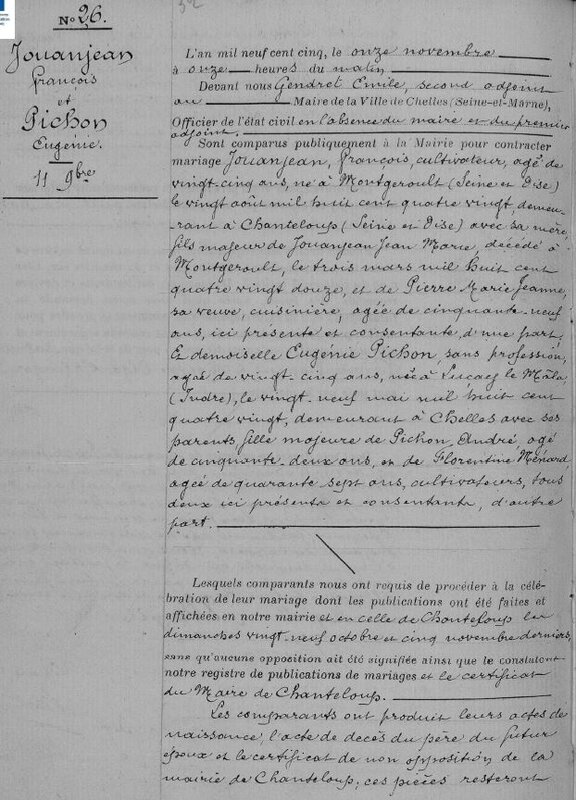 No 26.
Jouanjean
François
et
Pichon
Eugénie.
11 9bre
L'an mil neuf cent cinq, le onze novembre
à onze heures du matin
Devant nous Gendret Emile, second adjoint
au Maire de la Ville de Chelles (Seine-et-Marne),
Officier de l'état civil en l'absence du maire et du premier
adjoint.
Sont comparus publiquement à la Mairie pour contracter
mariage Jouanjean, François, cultivateur, agé de
vingt-cinq ans, né à Montgeroult (Seine et Oise)
le vingt août mil huit cent quatre vingt, demeu-
rant à Chanteloup (Seine et Oise) avec sa mère,
fils majeur de Jouanjean Jean Marie, décédé à
Montgeroult, le trois mars mil huit cent
quatre vingt douze, et de Pierre Marie Jeanne,
sa veuve, cuisinière, agée de cinquante-neuf
ans, ici présente et consentante, d'une part,
Et demoiselle Eugénie Pichon sans profession,
agée de vingt-cinq ans, née à le Mâle
(Indre), le vingt-neuf mai mil huit cent
quatre vingt, demeurant à Chelles avec ses
parents, fille majeure de Pichon, André, agé
de cinquante-deux ans, et de Florentine Ménard,
agée de quarante sept ans, cultivateurs, tous
deux ici présents et consentants, d'autre
part.
Lesquels comparants nous ont requis de procéder à la célé-
bration de leur mariage dont les publications ont été faites et
affichées en notre mairie et en celle de Chanteloup les
dimanches vingt-neuf octobre et cinq novembre derniers,
sans qu'aucune opposition ait été signifiée ainsi que le constatent
notre registre de publications de mariages et le certificat
du Maire de Chanteloup.
Les comparants ont produit leurs actes de
naissance, l'acte de décès du père du futur
époux et le certificat de non opposition de la
mairie de Chanteloup; ces pièces resteront